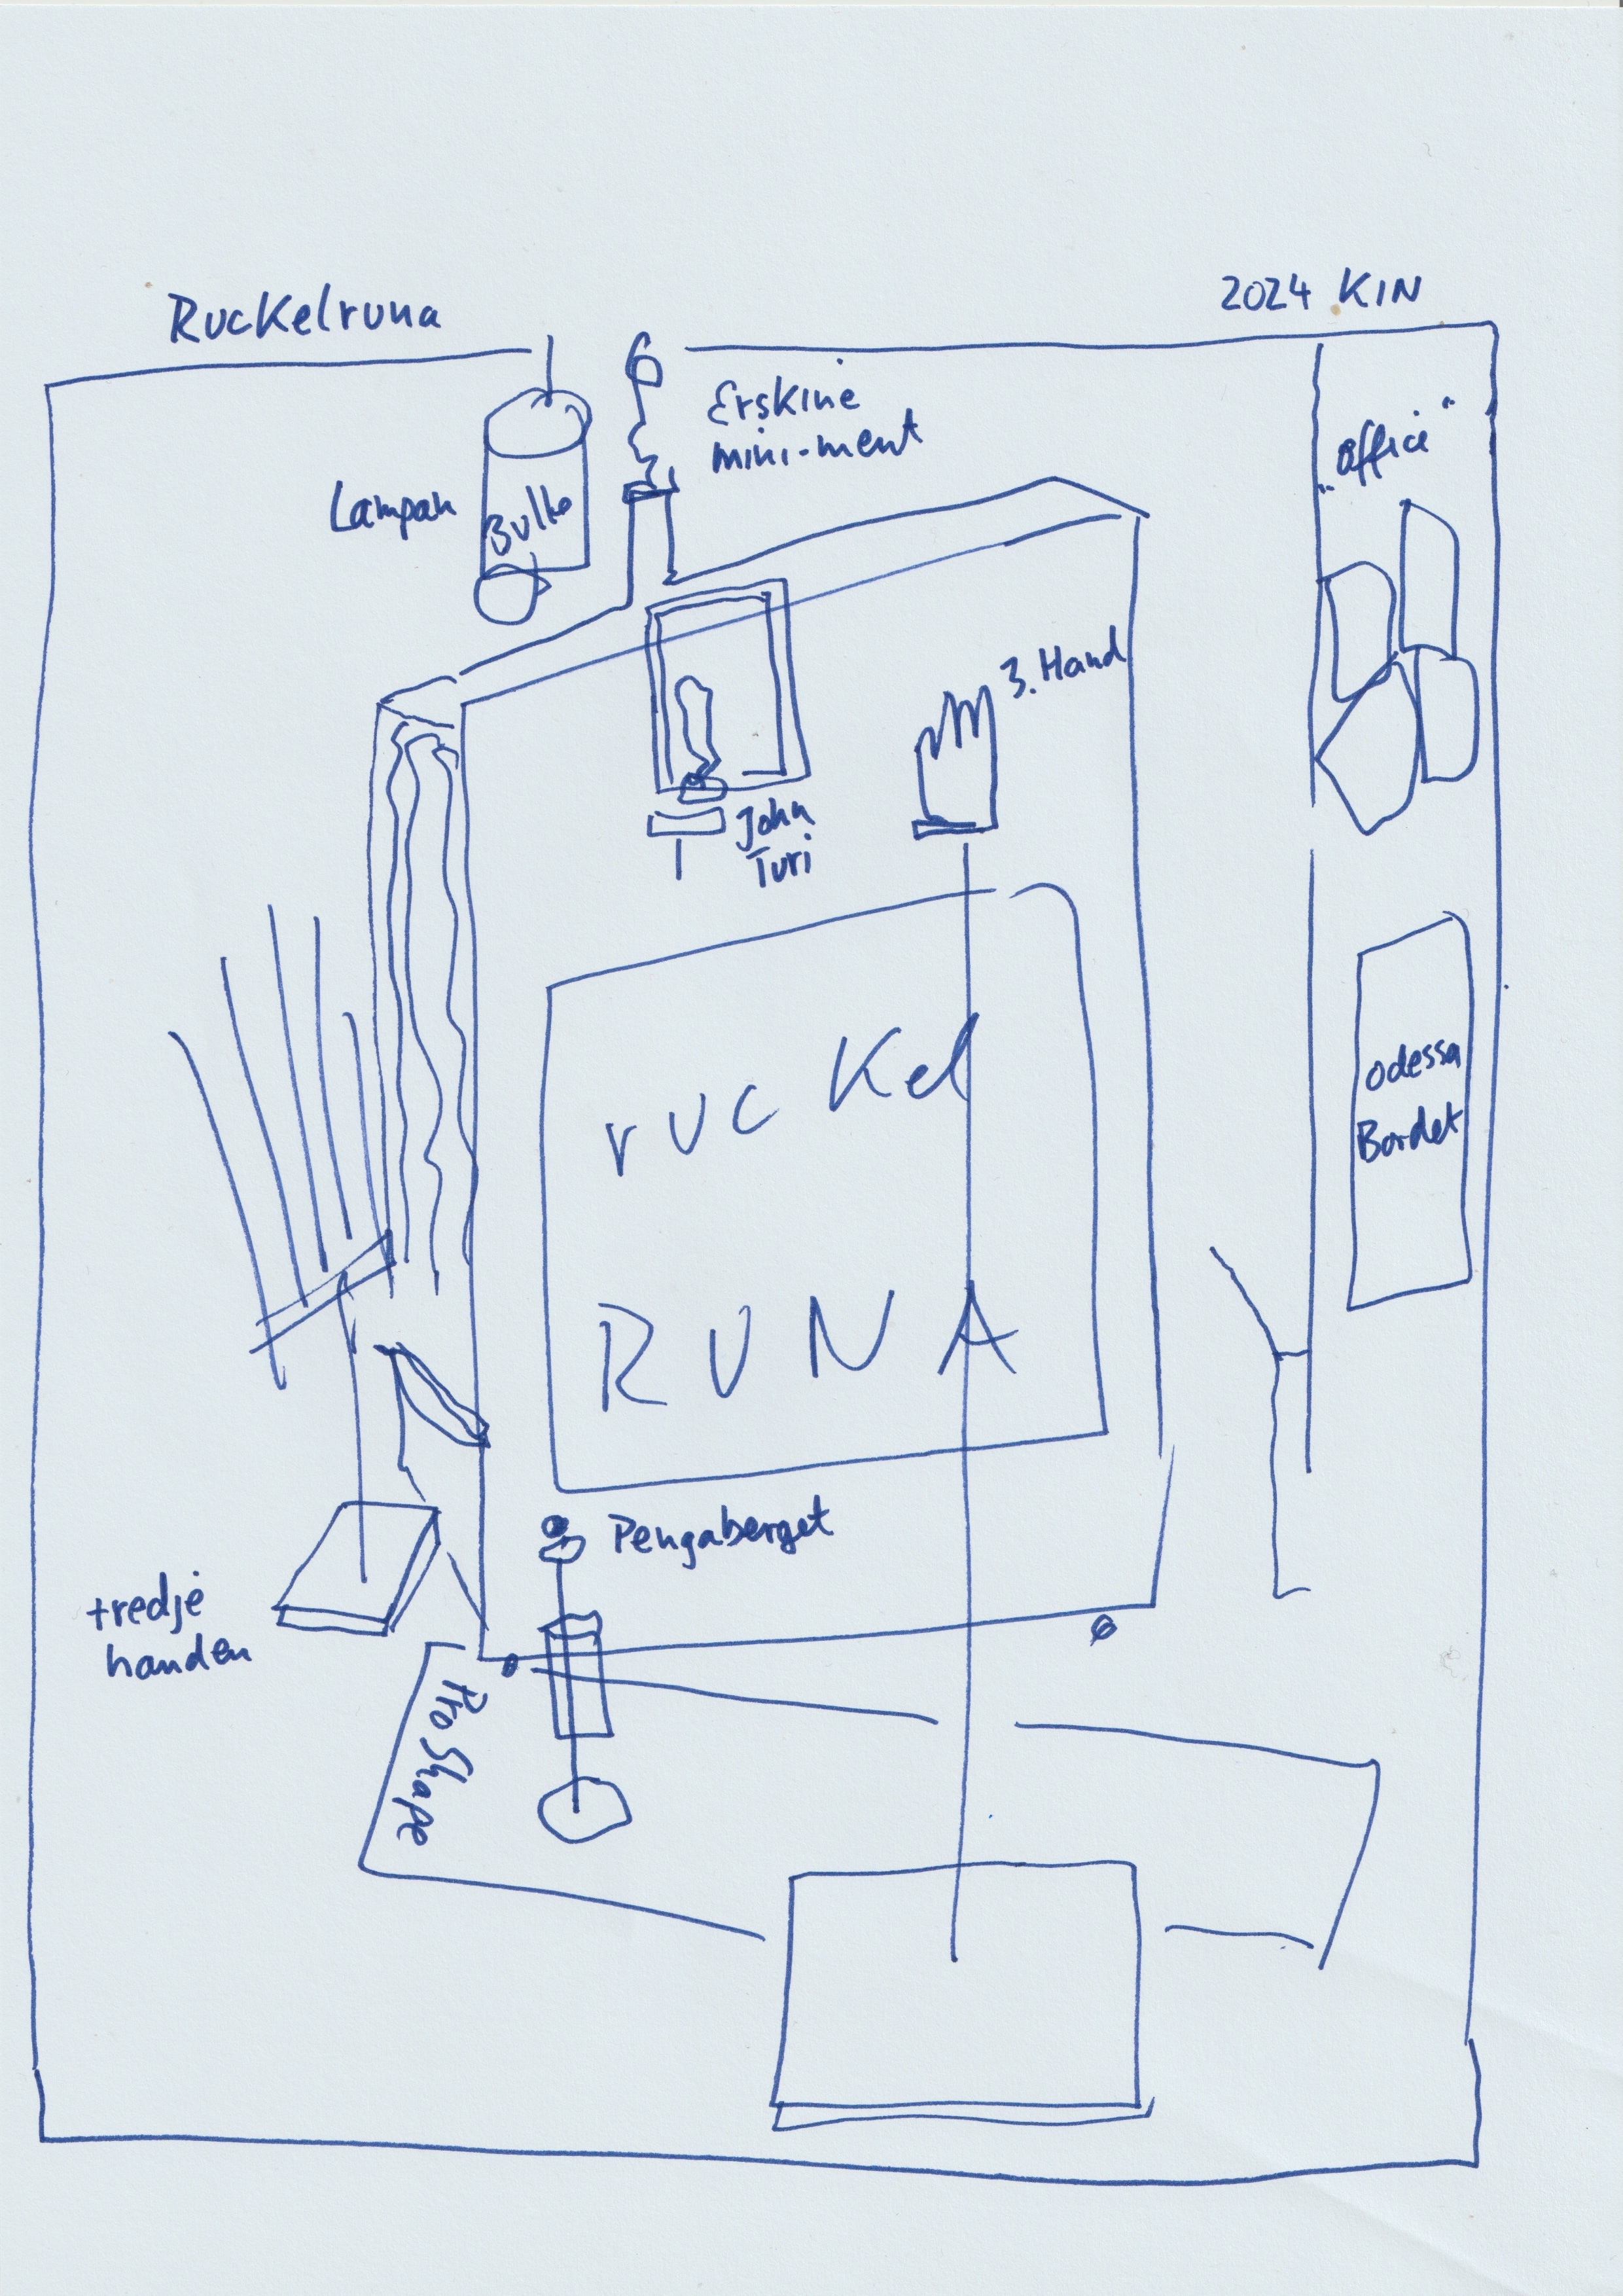 Ruckelruna
2024 KIN
Erskine
mini-ment
"office"
Lampan
Bulle
3. Hand
John
Turi
ruckel
RUNA
odessa
Bordet
Pengaberget
tredje
handen
Pro Shape